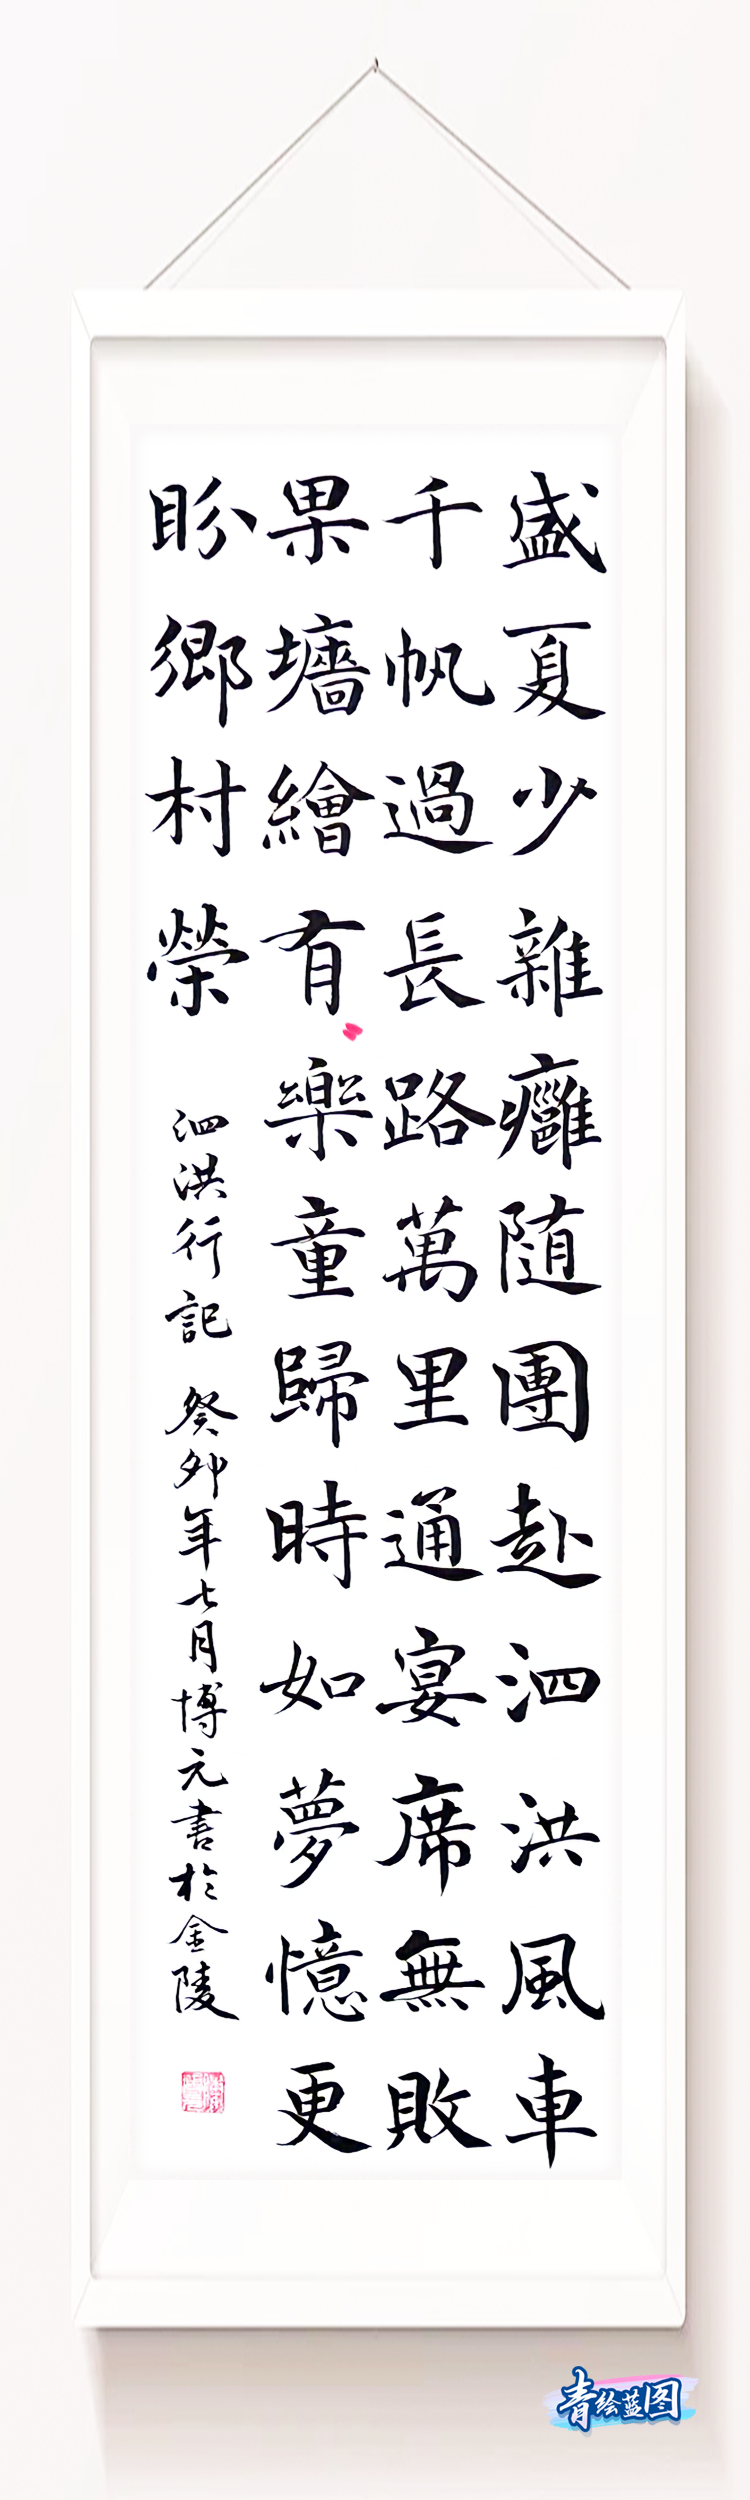 盛夏少雜癰随團赴泗洪風車
千帆過長路萬里通宴席無敗
果墻繪有樂童歸時如夢憶更
盼鄉村榮
泗洪行記 癸卯年七月博元書於金陵
青绘蓝图